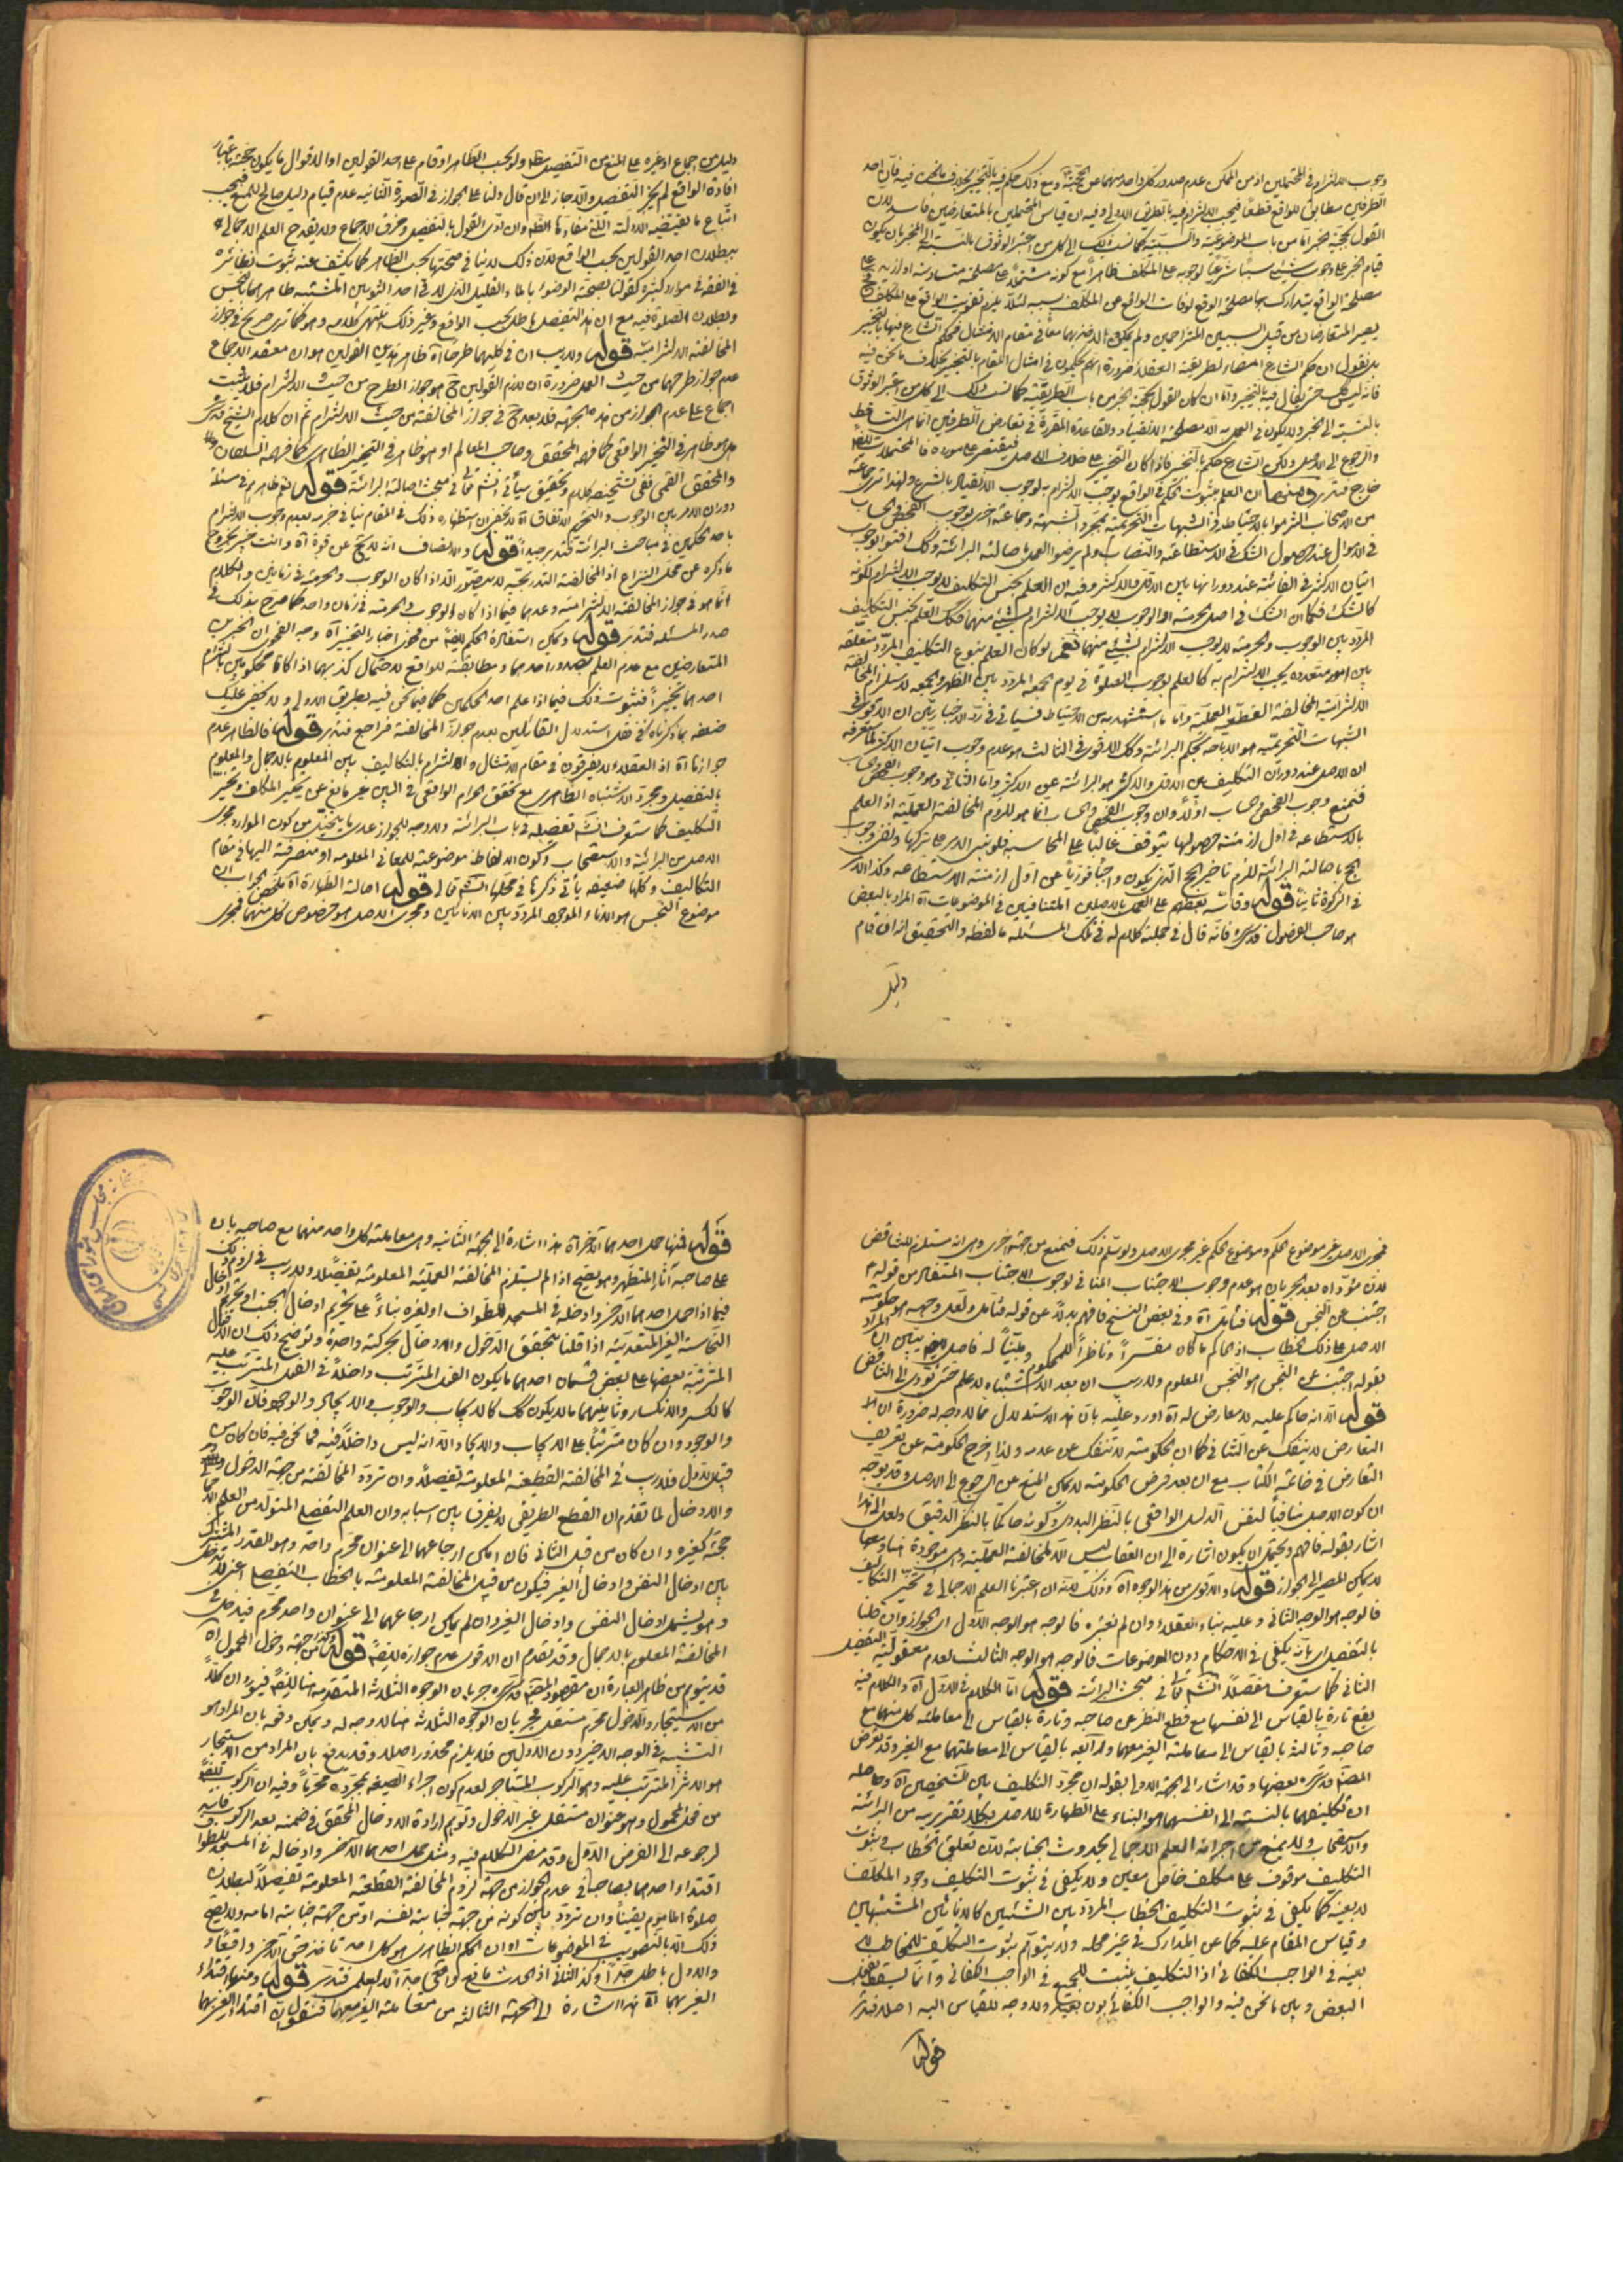 وجوب الالتزام في المحتملين اذ من الممكن عدم صدور كل واحد منهما عن الحجة ومع ذلك حكم فيه بالتخيير بخلاف ما نحن فيه فان احد
الطرفين مطابق للواقع قطعا فيجب الالتزام فيه بالطريق الاولى وفيه ان قياس المحتملين بالمتعارضين فاسد لان
القول بحجية الخبر اما من باب الموضوعية والسببية كما نسب ذلك الى كل من اعتبر الوثوق بالنسبة الى المخبر بان يكون
قيام الخبر على وجوب شيء سببا شرعيا لوجوبه على المكلف ظاهرا مع كونه مشتملا على مصلحة متساوية او ازيد
مصلحة الواقع يتدارك بها مصلحة الواقع لو فات الواقع عن المكلف بسببه لئلا يلزم تفويت الواقع على المكلف
يصير المتعارضان من قبيل السببين المتزاحمين ولم يمكن الاخذ بهما معا في مقام الامتثال فيحكم الشارع فيها بالتخيير
بل نقول ان حكم الشارع امضاء لطريقة العقلاء ضرورة انهم يحكمون في امثال المقام بالتخيير بخلاف ما نحن فيه
فانه ليس كك حتى يقال فيه بالتخيير واما ان كان القول بحجية الخبر من باب الطريقية كما نسب ذلك الى كل من اعتبر الوثوق
بالنسبة الى الخبر ولا يكون في العمل به الا مصلحة الانقياد والقاعدة المقررة في تعارض الطرفين انما هي التساقط
والرجوع الى الاصل ولكن الشارع حكم بالتخيير فاذا كان التخيير على خلاف الاصل فيقتصر على مورده
خارج فتدبر ومنها ان العلم بثبوت الحكم في الواقع يوجب الالتزام به لوجوب الانقياد بالشرع ولهذا ترى جماعة
من الاصحاب التزموا بالاحتياط في الشبهات التحريمية بمجرد الشبهة وجماعة اخرى بوجوب الفحص والحساب
في الاموال عند حصول الشك في الاستطاعة والنصاب ولم يرضوا العمل باصالة البرائة وكك افتوا بوجوب
اتيان الاكثر في الفائتة عند دورانها بين الاقل والاكثر وفيه ان العلم بجنس التكليف لا يوجب الالتزام لكونه
كالشك فكما ان الشك في اصل الحرمة او الوجوب لا يوجب الالتزام بشيء منهما فكك العلم بجنس التكليف
المردد بين الوجوب والحرمة لا يوجب الالتزام بشيء منهما نعم لو كان العلم بنوع التكليف المردد متعلقه
بين امور متعددة يجب الالتزام به كالعلم بوجوب الصلوة في يوم الجمعة المردد بين الظهر والجمعة لاستلزام المخالفة
الالتزامية المخالفة القطعية العملية واما ما استشهد به من الاحتياط فسيأتي في رد الاخباريين ان الاقوى في
الشبهات التحريمية هو الاباحة بحكم البرائة وكك الاقوى في الثالث هو عدم وجوب اتيان الاكثر لما ستعرفه
ان الاصل عند دوران التكليف بين الاقل والاكثر هو البرائة عن الاكثر واما الثاني وهو وجوب الفحص والحساب
فنمنع وجوب الفحص والحساب اولا وان وجوب الفحص والحساب انما هو للزوم المخالفة العملية اذ العلم
بالاستطاعة في اول ازمنة حصولها يتوقف غالبا على المحاسبة فلو بنى الامر على تركها ونفى وجوب
الحج باصالة البرائة للزم تاخير الحج الذي يكون واجبا فوريا عن اول ازمنة الاستطاعة وكذا الامر
في الزكوة ثانيا قوله وقاسه بعضهم على العمل بالاصلين المتنافيين في الموضوعات آه المراد بالبعض
هو صاحب الفصول قدس سره فانه قال في جملة كلام له في تلك المسئلة ما لفظه والتحقيق انه ان قام
دليل
دليل من اجماع او غيره على المنع من التفصيل مطلقا ولو بحسب الظاهر او قام على احد القولين او الاقوال ما يكون حجته باعتبار
افادة الواقع لم يجز التفصيل والا جاز الى ان قال ولنا على الجواز في الصورة الثانية عدم قيام دليل صالح للمنع فيجب
اتباع ما يقتضيه الادلة اللتي مفادها الظاهر وان ادى القول بالتفصيل وخرق الاجماع ولا يقدح العلم الاجمالي
ببطلان احد القولين بحسب الواقع لان ذلك لا ينافي صحتهما بحسب الظاهر كما يكشف عنه ثبوت نظائره
في الفقه في موارد كثيرة كقولنا بصحة الوضوء بالماء القليل الذي لاقى احد الثوبين المشتبه طاهرهما بالنجس
وبطلان الصلوة فيه مع ان هذا التفصيل باطل بحسب الواقع وغير ذلك انتهى كلامه وهو كما ترى صريح في جواز
المخالفة الالتزامية قوله ولا ريب ان في كليهما طرحا آه ظاهر هذين القولين هو ان معقد الاجماع
عدم جواز طرحهما من حيث العمل ضرورة ان لازم القولين ح هو جواز الطرح من حيث الالتزام فلا يثبت
اجماع على عدم الجواز من هذه الجهة فلا بعد ح في جواز المخالفة من حيث الالتزام ثم ان كلام الشيخ قدس سره
هل هو ظاهر في التخيير الواقعي كما فهمه المحقق وصاحب المعالم او هو ظاهر في التخيير الظاهري كما فهمه السلطان
والمحقق القمي ففي تشخيص كلامه وتحقيق سيأتي انشاء الله تعالى في مبحث اصالة البرائة قوله نعم ظاهرهم في مسئلة
دوران الامر بين الوجوب والتحريم الاتفاق آه لا يخفى ان استظهاره ذلك في المقام ينافي جزمه بعدم وجوب الالتزام
باحد الحكمين في مباحث البرائة فتدبر جيدا قوله والانصاف انه لا يخ عن قوة آه وانت خبير بخروج
ما ذكره عن محل النزاع اذ المخالفة التدريجية لا يتصور الا اذا كان الوجوب والحرمة في زمانين والكلام
انما هو في جواز المخالفة الالتزامية وعدمها فيما اذا كان الوجوب والحرمة في زمان واحد كما صرح بذلك في
صدر المسئلة فتدبر قوله ويمكن استفادة الحكم ايضا من فحوى اخبار التخيير آه وجه الفحوى ان الخبرين
المتعارضين مع عدم العلم بصدور احدهما ومطابقته للواقع لاحتمال كذبهما اذا كانا محكومين بالتزام
احدهما تخييرا فثبوت ذلك فيما اذا علم احد الحكمين كما فيما نحن فيه بطريق اولى ولا يخفى عليك
ضعفه بما ذكرناه في نقل استدلال القائلين بعدم جواز المخالفة فراجع فتدبر قوله فالظاهر عدم
جوازها آه اذ العقلاء لا يفرقون في مقام الامتثال والالتزام بالتكاليف بين المعلوم بالاجمال والمعلوم
بالتفصيل ومجرد الاشتباه الظاهري مع تحقق الحرام الواقعي في البين غير مانع عن تنجيز التكليف وتخير
التكليف كما ستعرف انشاء الله تفصيله في باب البرائة ولا وجه للجواز عدى ما يتخيل من كون الموارد مجرى
الاصل من البرائة والاستصحاب وكون الالفاظ موضوعة للمعاني المعلومة او منصرفة اليها في مقام
التكاليف وكلها ضعيفة يأتي ذكرها في محلها انشاء الله تعالى قوله اصالة الطهارة آه ملخص الجواب ان
موضوع النجس هو الاناء الموجود المردد بين الانائين ومجرى الاصل هو خصوص كل منهما فمجرى
فمجرى الاصل غير موضوع الحكم وموضوع الحكم غير مجرى الاصل ولو سلم ذلك فنمنع من جهة اخرى وهي انه مستلزم للتناقض
لان مؤداه بعد الجريان هو عدم وجوب الاجتناب المنافي لوجوب الاجتناب المستفاد من قوله
اجتنب عن النجس قوله فتأمل آه وفي بعض النسخ فافهم بدلا عن قوله فتأمل ولعل وجهه هو حكومة
الاصل على ذلك الخطاب اذ الحاكم ما كان مفسرا وناظرا للمحكوم ومبينا له فاصل يبين ان المراد
بقوله اجتنب عن النجس هو النجس المعلوم ولا ريب ان بعد الاشتباه لا علم حتى يؤدي الى التناقض
قوله الا انه حاكم عليه لا معارض له آه اورد عليه بان هذا الاستدلال مما لا وجه له ضرورة ان
التعارض لا ينفك عن التنافي كما ان الحكومة لا تنفك عن عدمه ولذا اخرج الحكومة عن تعريف
التعارض في خاتمة الكتاب مع ان بعد فرض الحكومة لا يمكن المنع عن الرجوع الى الاصل وقد يوجه
ان كون الاصل منافيا لنفس الدليل الواقعي بالنظر البدوي وكونه حاكما بالنظر الدقيق ولعل الى هذا
اشار بقوله فافهم ويحتمل ان يكون اشارة الى ان العقاب ليس الا للمخالفة العملية وهي موجودة هنا
لا يمكن المصير الى الجواز قوله والاقوى من هذه الوجوه آه وذلك لانه ان اعتبرنا العلم الاجمالي في تنجز التكاليف
فالوجه هو الوجه الثاني وعليه بناء العقلاء وان لم نعتبره فالوجه هو الوجه الاول اي الجواز وان قلنا
بالتفصيل اي بانه يكفي في الاحكام دون الموضوعات فالوجه هو الوجه الثالث لعدم معقولية التفصيل
الثاني كما ستعرف مفصلا انشاء الله تعالى في مبحث البرائة قوله اما الكلام في الاول آه والكلام فيه
يقع تارة بالقياس الى نفسها مع قطع النظر عن صاحبه وتارة بالقياس الى معاملة كل منهما مع
صاحبه وثالثة بالقياس الى معاملة الغير معهما ورابعة بالقياس الى معاملتهما مع الغير وقد تعرض
المصنف قدس سره بعضها وقد اشار الى الجهة الاولى بقوله ان مجرد التكليف بين الشخصين آه وحاصله
ان تكليفهما بالنسبة الى انفسهما هو البناء على الطهارة للاصل بكلا تقريريه من البرائة
والاستصحاب ولا يمنع من اجرائه العلم الاجمالي بحدوث الجنابة لان تعلق الخطاب وثبوت
التكليف موقوف على مكلف خاص معين ولا يكفي في ثبوت التكليف وجود المكلف
لا بعينه كما يكفي في ثبوت التكليف الخطاب المردد بين الشيئين كالانائين المشتبهين
وقياس المقام عليه كما عن المدارك في غير محله ولا يتوهم ثبوت التكليف للمخاطب لا
بعينه في الواجب الكفائي اذ التكليف يثبت للجميع في الواجب الكفائي وانما يسقط بفعل
البعض وبين ما نحن فيه والواجب الكفائي بون بعيد ولا وجه للقياس اليه اصلا فتدبر
قوله
قوله فمنها حمل احدهما الآخر آه هذا اشارة الى الجهة الثانية وهي معاملة كل واحد منهما مع صاحبه بان
على صاحبه آثار المتطهر وهو يصح اذا لم يستلزم المخالفة العملية المعلومة تفصيلا ولا ريب في لزوم ذلك
فيما اذا حمل احدهما الآخر وادخله في المسجد للطواف او لغيره بناء على تحريم ادخال الجنب او تحريم ادخال
النجاسة الغير المتعدية اذا قلنا بتحقق الدخول والادخال بحركة واحدة وتوضيح ذلك ان الافعال
المترتبة بعضها على بعض قسمان احدهما ما يكون الفعل المترتب داخلا في الفعل المترتب عليه
كالكسر والانكسار وثانيهما ما لا يكون كك كالايجاب والوجوب والايجاد والوجود فان الوجوب
والوجود وان كان مترتبا على الايجاب والايجاد الا انه ليس داخلا فيه فما نحن فيه فان كان من
قبيل الاول فلا ريب في المخالفة القطعية المعلومة تفصيلا وان تردد المخالفة من جهة الدخول
والادخال لما تقدم ان القطع الطريقي لا يفرق بين اسبابه وان العلم التفصيلي المتولد من العلم الاجمالي
حجة كغيره وان كان من قبيل الثاني فان امكن ارجاعهما الى عنوان محرم واحد وهو القدر المشترك
بين ادخال النفس وادخال الغير فيكون من قبيل المخالفة المعلومة بالخطاب التفصيلي
وهو يشمل ادخال النفس وادخال الغير وان لم يمكن ارجاعهما الى عنوان واحد محرم فيدخل في
المخالفة المعلوم بالاجمال وقد تقدم ان الاقوى عدم جوازه ايضا قوله وكذا من جهة دخول المحمول آه
قد يتوهم من ظاهر العبارة ان مقصود المصنف قدس سره جريان الوجوه الثلاثة المتقدمة هنا ايضا فيورد ان كلا
من الاستيجار والدخول محرم مستقل فجريان الوجوه الثلاثة هنا لا وجه له ويمكن دفعه بان المراد هو
التشبيه في الوجه الاخير دون الاولين فلا يلزم محذور اصلا وقد يدفع بان المراد من الاستيجار
هو الاثر المترتب عليه وهو الركوب المستاجر لعدم كون اجراء الصيغة بمجرده محرما وفيه ان الركوب
من فعل المحمول وهو عنوان مستقل غير الدخول وتوهم ارادة الادخال المتحقق في ضمنه بعد الركوب
لرجوعه الى الفرض الاول وقد مضى الكلام فيه ومثل حمل احدهما الآخر وادخاله في المسجد للطواف
اقتداء احدهما بصاحبه في عدم الجواز من جهة لزوم المخالفة القطعية المعلومة تفصيلا لبطلان
صلوة المأموم يقينا وان تردد بين كونه من جهة جنابة نفسه او من جهة جنابة امامه ولا يصح
ذلك الا بالتصويب في الموضوعات او ان الحكم الظاهري هو كل احد نافذ في حق الآخر واقعا
والاول باطل جدا وكذا الثاني اذ الحدث مانع واقعي حد العلم فتدبر قوله ومنها اقتداء
الغير بهما آه هذا اشارة الى الجهة الثالثة من معاملة الغير معهما فنقول ان اقتداء الغير بهما